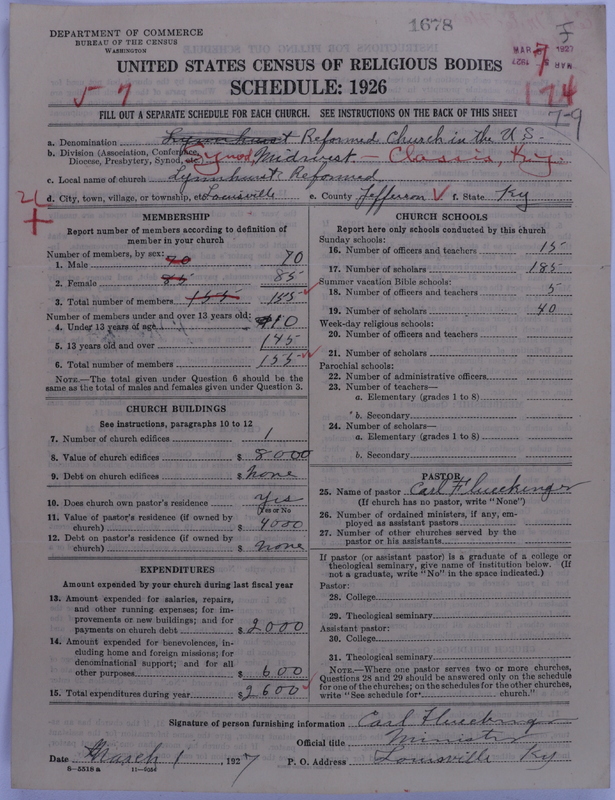 1678
DEPARTMENT OF COMMERCE
BUREAU OF THE CENSUS
WASHINGTON
MAR 7 1927
UNITED STATES CENSUS OF RELIGIOUS BODIES
SCHEDULE: 1926
5 7
174
7-9
FILL OUT A SEPARATE SCHEDULE FOR EACH CHURCH. SEE INSTRUCTIONS ON THE BACK OF THIS SHEET
a. Denomination Lynnhurst Reformed Church in the U.S.
b. Division (Association, Conference, Diocese, Presbytery, Synod, etc.) Synod Midwest — Classis, Ky.
c. Local name of church Lynnhurst Reformed
d. City, town, village, or township, etc. Louisville e. County Jefferson f. State Ky
MEMBERSHIP
Report number of members according to definition of
member in your church
Number of members, by sex:
1. Male 70 70
2. Female 85 85
3. Total number of members 155 155
Number of members under and over 13 years old:
4. Under 13 years of age 10
5. 13 years old and over 145
6. Total number of members 155
NOTE.—The total given under Question 6 should be the
same as the total of males and females given under Question 3.
CHURCH BUILDINGS
See instructions, paragraphs 10 to 12
7. Number of church edifices 1
8. Value of church edifices $ 8000
9. Debt on church edifices $ None
10. Does church own pastor's residence? yes
Yes or No
11. Value of pastor's residence (if owned by
church) $ 4000
12. Debt on pastor's residence (if owned by
church) $ None
EXPENDITURES
Amount expended by your church during last fiscal year
13. Amount expended for salaries, repairs,
and other running expenses; for im-
provements or new buildings; and for
payments on church debt $ 2000
14. Amount expended for benevolences, in-
cluding home and foreign missions; for
denominational support; and for all
other purposes $ 600
15. Total expenditures during year $ 2600
CHURCH SCHOOLS
Report here only schools conducted by this church
Sunday schools:
16. Number of officers and teachers 15
17. Number of scholars 185
Summer vacation Bible schools:
18. Number of officers and teachers 5
19. Number of scholars 40
Week-day religious schools:
20. Number of officers and teachers
21. Number of scholars
Parochial schools:
22. Number of administrative officers
23. Number of teachers—
a. Elementary (grades 1 to 8)
b. Secondary
24. Number of scholars—
a. Elementary (grades 1 to 8)
b. Secondary
PASTOR
25. Name of pastor Carl Flueckinger
(If church has no pastor, write "None")
26. Number of ordained ministers, if any, em-
ployed as assistant pastors
27. Number of other churches served by the
pastor or his assistants
If pastor (or assistant pastor) is a graduate of a college or
theological seminary, give name of institution below. (If
not a graduate, write "No" in the space indicated.)
Pastor:
28. College
29. Theological seminary
Assistant pastor:
30. College
31. Theological seminary
NOTE.—Where one pastor serves two or more churches,
Questions 28 and 29 should be answered only on the schedule
for one of the churches; on the schedules for the other churches,
write "See schedule for church."
Signature of person furnishing information Carl Flueckinger
Official title Minister
Date March 1, 1927 P. O. Address Louisville Ky
8—5518 a 11—6054